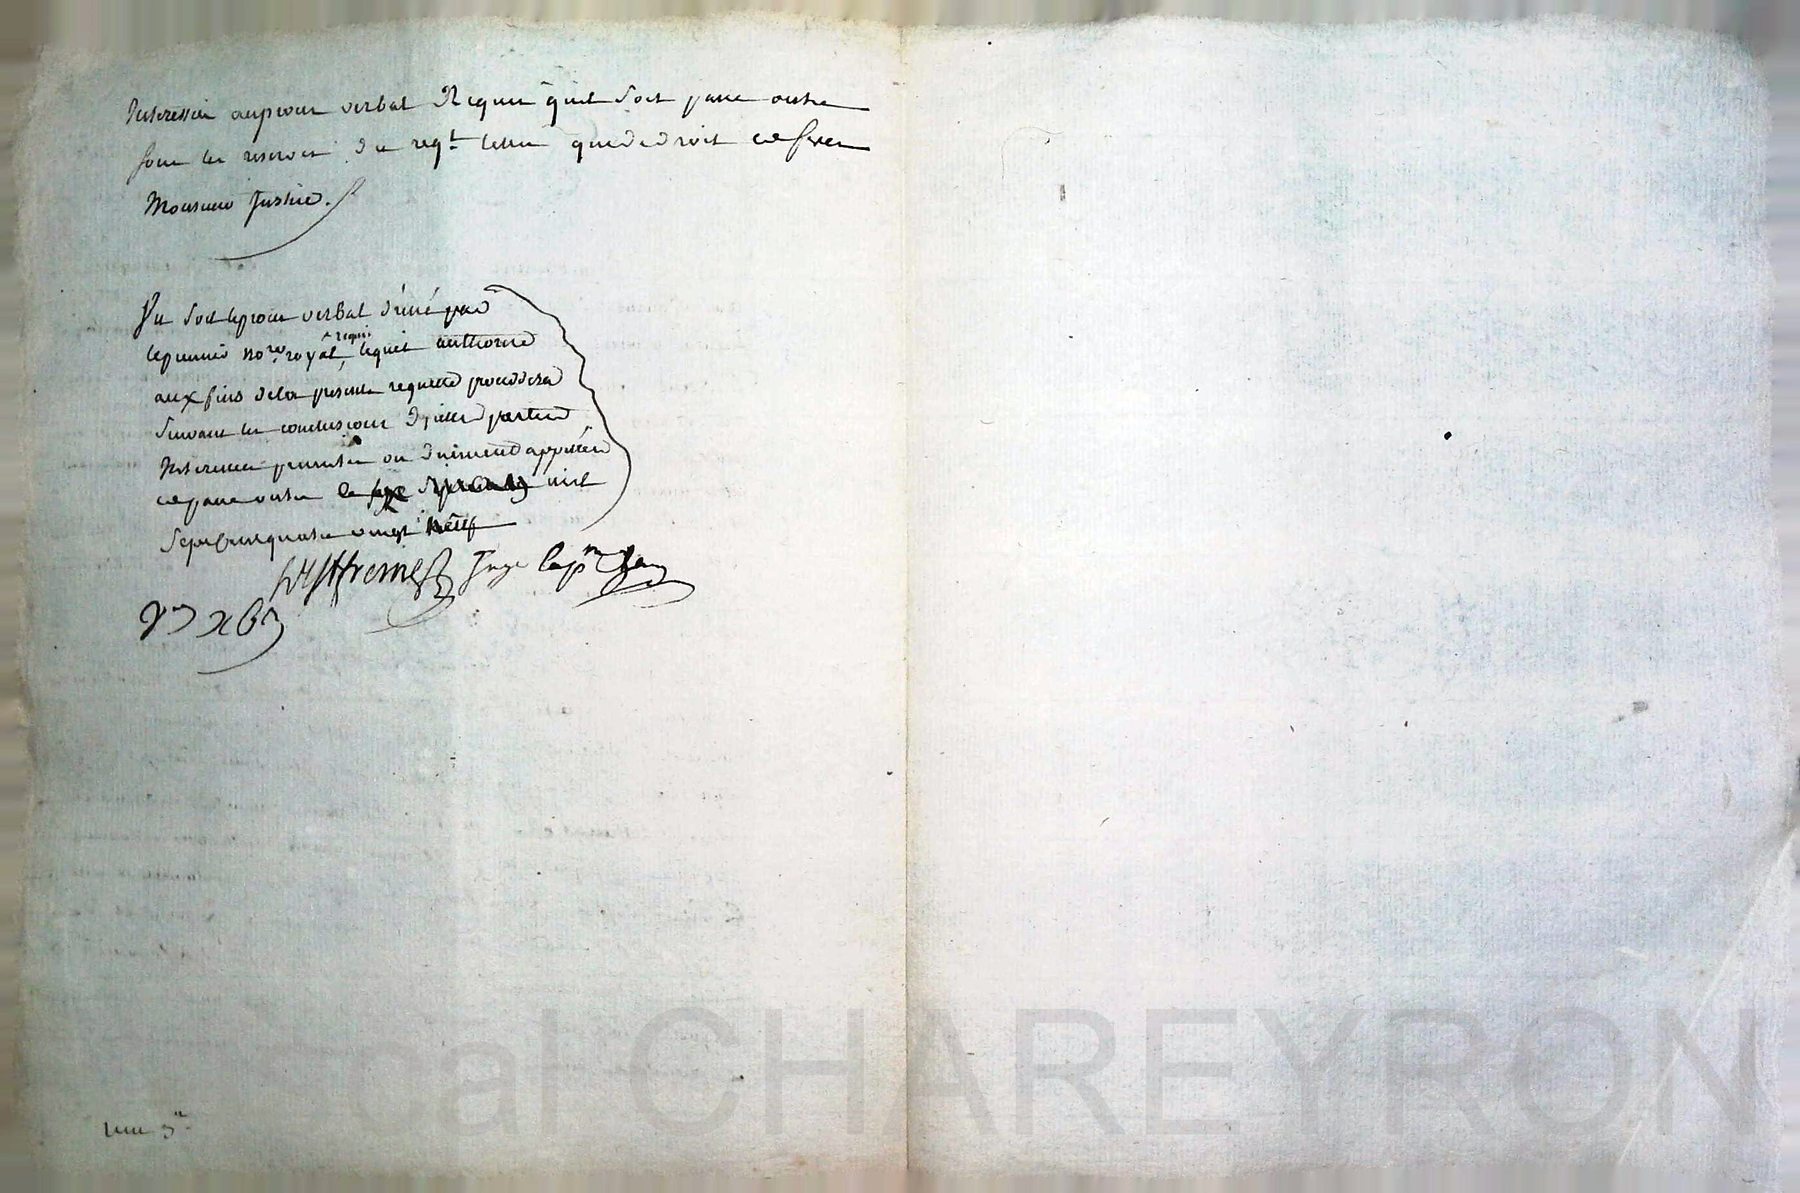 Interessée au proces verbal Requier quil soit passé outre
sous les reserves du reqt. telles que de droit et feres
Monsieur Justice.
Vu soit le proces verbal dressé par
le premier nore. royal requis lequel authorisé
aux fins de la presente requette procedera
suivant les conclusions d'icelle parties
Interessées presentes ou duement appellées
et passé outre le mil
sept cens quatre vingt neuf
Juge
scal CHAREYRON